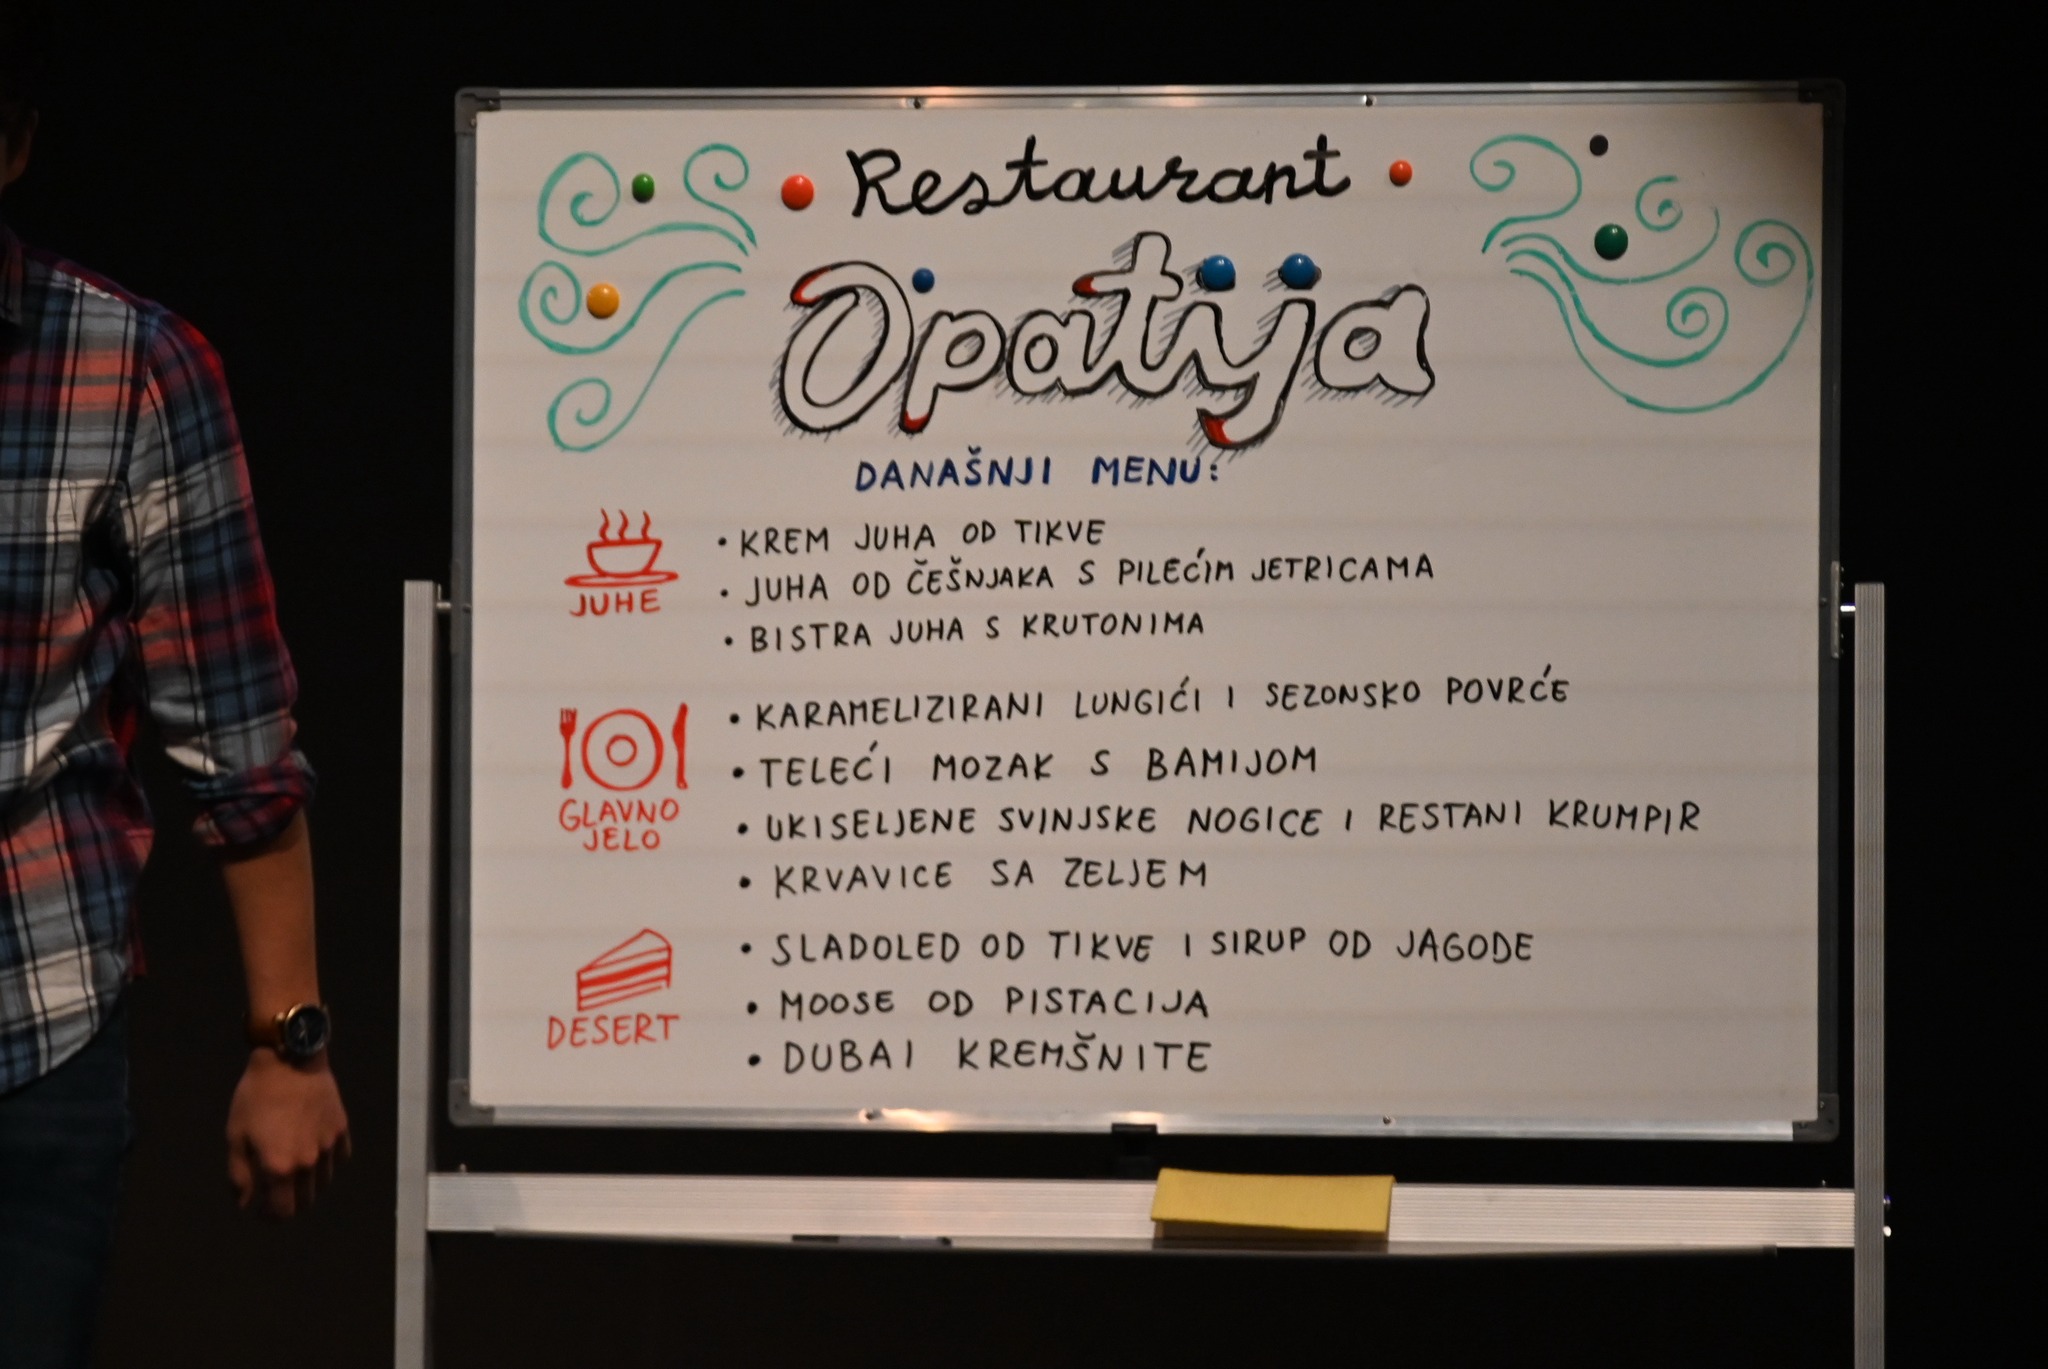 Restaurant
Opatija
DANAŠNJI MENU:
JUHE
• KREM JUHA OD TIKVE
• JUHA OD ČEŠNJAKA S PILEĆIM JETRICAMA
• BISTRA JUHA S KRUTONIMA
GLAVNO
JELO
• KARAMELIZIRANI LUNGIĆI I SEZONSKO POVRĆE
• TELEĆI MOZAK S BAMIJOM
• UKISELJENE SVINJSKE NOGICE I RESTANI KRUMPIR
• KRVAVICE SA ZELJEM
DESERT
• SLADOLED OD TIKVE I SIRUP OD JAGODE
• MOOSE OD PISTACIJA
• DUBAI KREMŠNITE